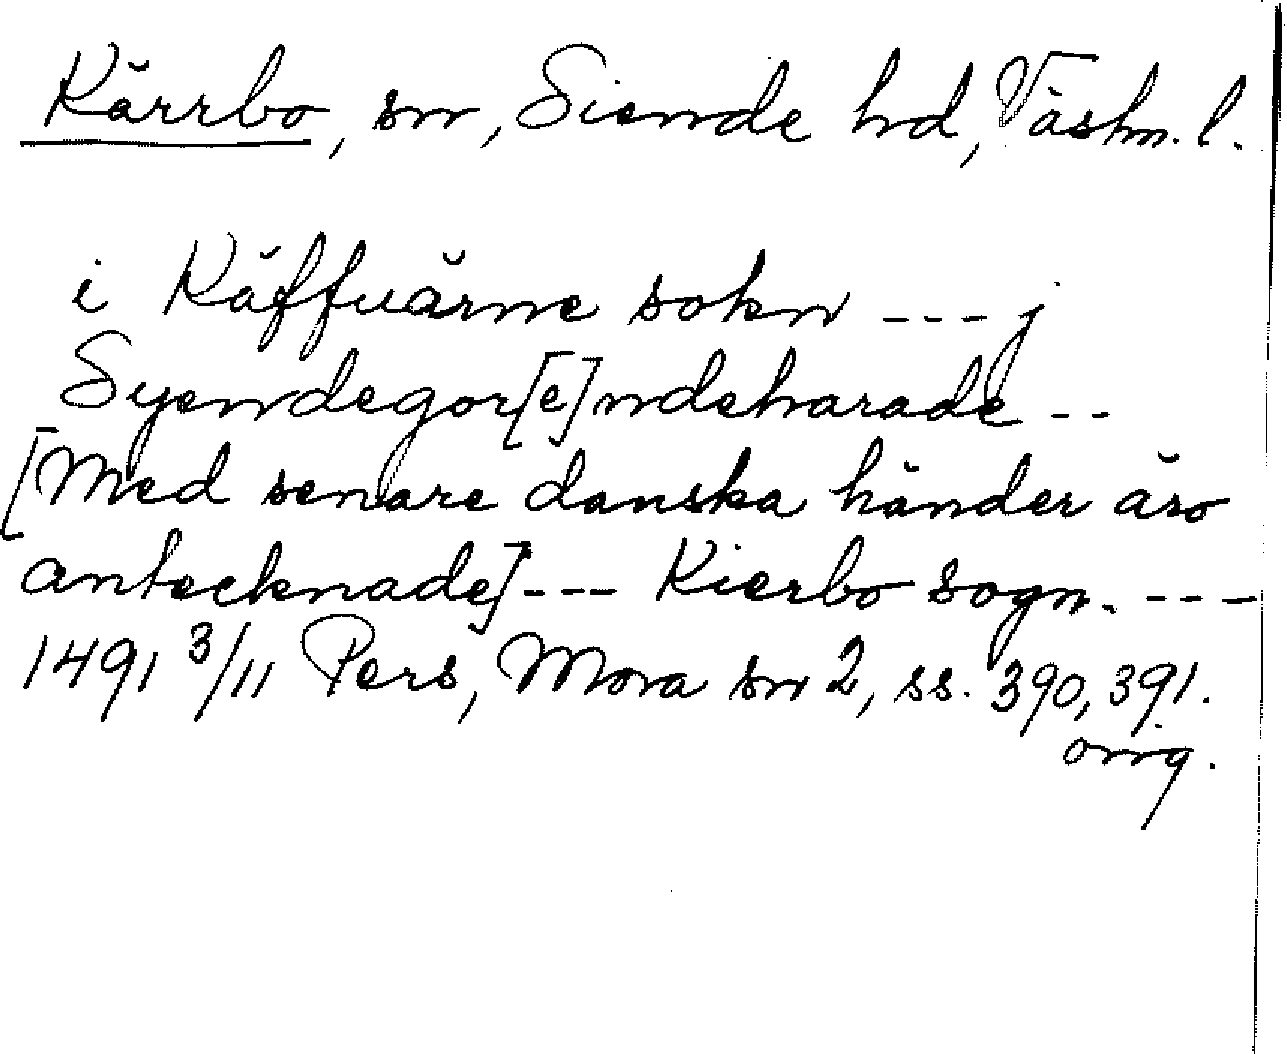 Kärrbo, sn, Siende hd, Västm. l.
i Käffuärne sokn --- j
Syendegor[e]ndeharade --
[Med senare danska händer äro
antecknade] --- Kierbo sogn. ---
1491 3/11 Pers, Mora sn 2, ss. 390, 391.
orig.